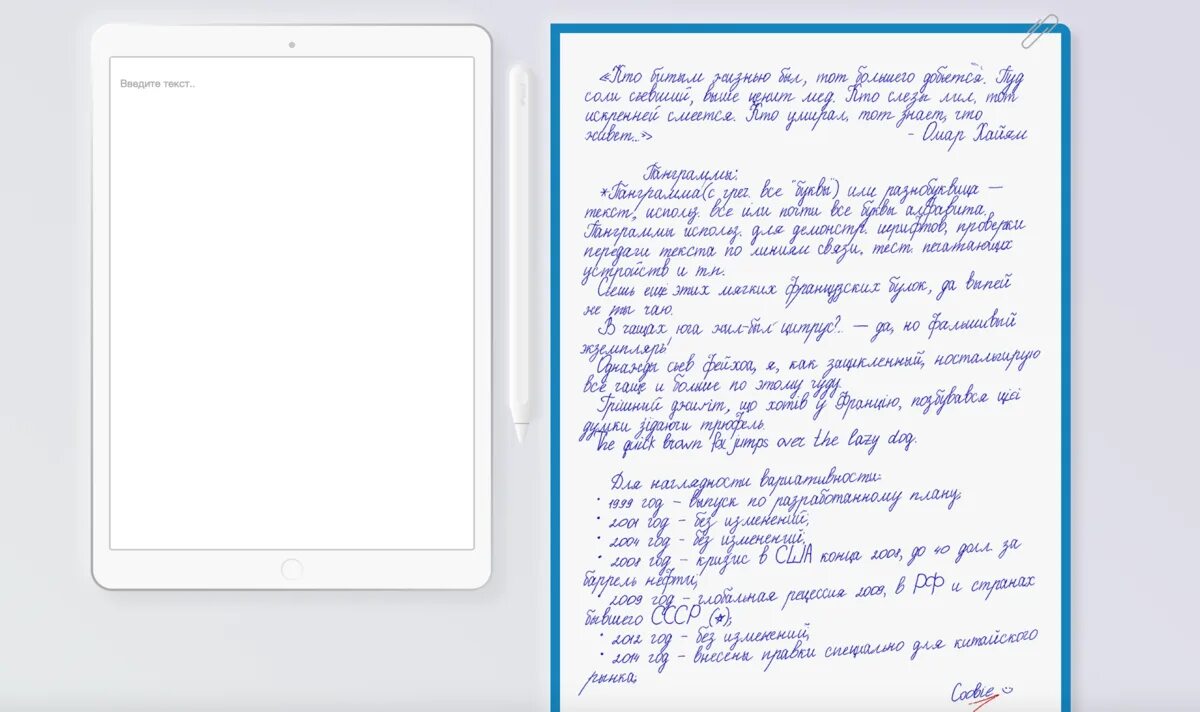 Введите текст..
«Кто битым жизнью был, тот большего добьется. Пуд
соли съевший, выше ценит мед. Кто слезы лил, тот
искренней смеется. Кто умирал, тот знает, что
живет...»
- Омар Хайям
Панграммы:
*Панграмма(с греч. все "буквы") или разнобуквица —
текст, использ. все или почти все буквы алфавита.
Панграммы использ. для демонстр. шрифтов, проверки
передачи текста по линиям связи, тест. печатающих
устройств и т.п.
Съешь ещё этих мягких французских булок, да выпей
же ты чаю.
В чащах юга жил-был цитрус?.. — да, но фальшивый
экземпляръ!
Однажды съев фейхоа, я, как зацикленный, ностальгирую
всё чаще и больше по этому чуду.
Грішний джиґіт, що хотів у Францію, позбувався цієї
думки з'їдаючи трюфель.
The quick brown fox jumps over the lazy dog.
Для наглядности вариативности:
• 1999 год - выпуск по разработанному плану;
• 2001 год - без изменений;
• 2004 год - без изменений;
• 2008 год - кризис в США конца 2008, до 40 долл. за
баррель нефти;
• 2009 год - глобальная рецессия 2009, в РФ и странах
бывшего СССР (*);
• 2012 год - без изменений;
• 2014 год - внесены правки специально для китайского
рынка;